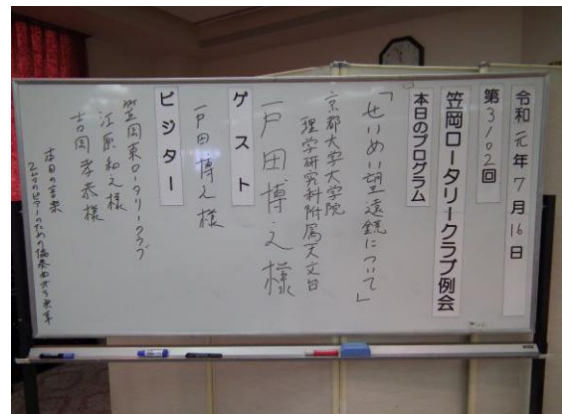 令和元年7月16日
第3102回
笠岡ロータリークラブ例会
本日のプログラム
「せいめい望遠鏡について」
京都大学大学院
理学研究科附属天文台
戸田博之様
ゲスト
戸田博之様
ビジター
笠岡東ロータリークラブ
江原和之様
吉岡孝恭様
本日の音楽
2台のピアノのための協奏曲